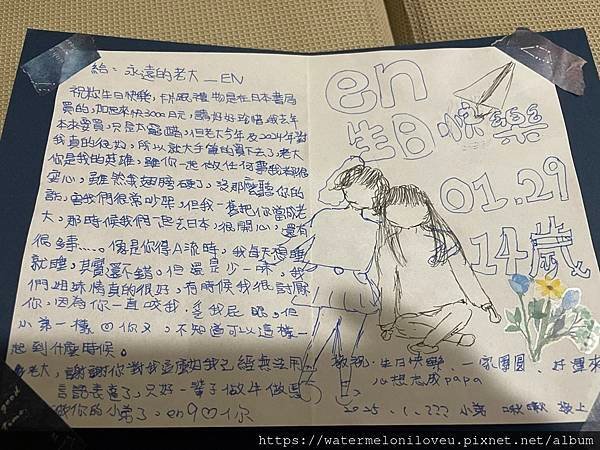 給：永遠的老大＿EN
祝你生日快樂，卡片跟禮物是在日本書局
買的，加起來快3000日元，請好好珍惜，我去年
本來要買，只是太
但老大今年及2024年對
我真的很好，所以就大手筆的買下去了，老大
你是我的英雄，跟你一起做任何事我都很
安心，雖然我翅膀硬了，沒那麼聽你的
話，當我們很常吵架，但我一直把你當成老
大，那時候我們一起去日本，很開心，還有
很多事......。像是你得A流時，我每天
就睡，其實還不錯。但還是少一味，我
們姐妹情真的很好，有時候我很討厭
你，因為你一直咬我，
但
小弟一樣♡你ㄡ，不知道可以這樣一
起到什麼時候。
老大，謝謝你對我這麼好我已經無法用
言語表達了，只好一輩子做牛做馬
做你的小弟了，en9♡你
en
生日快樂
01.29
14歲
敬祝：生日快樂、一家團圓、好運來
心想志成papa
2025.1.??? 小弟 啾啾 敬上
https://watermeloniloveu.pixnet.net/album